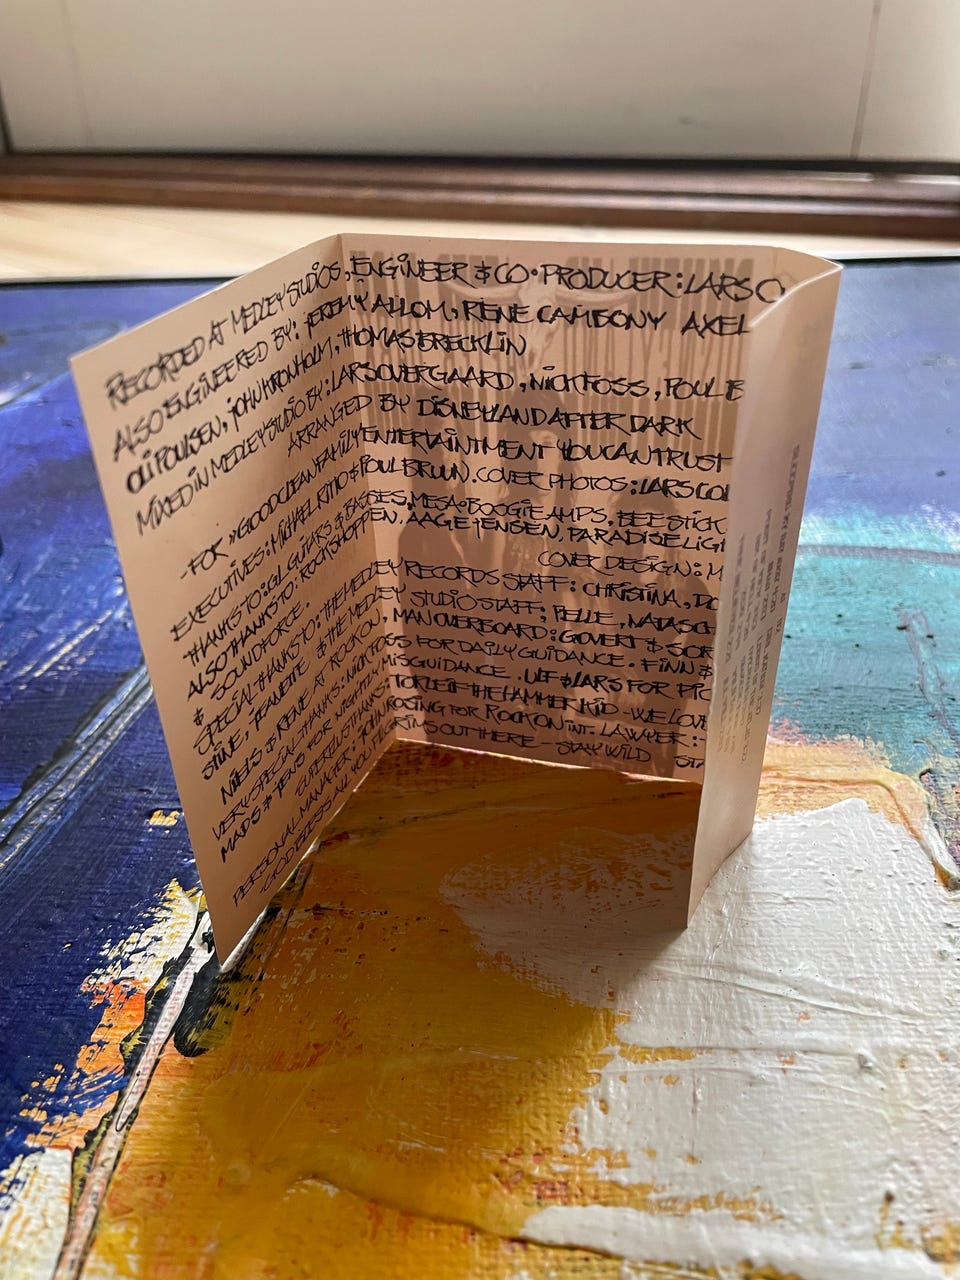 RECORDED AT MEDLEY STUDIOS, ENGINEER & CO-PRODUCER: LARS O
ALSO ENGINEERED BY: JEREMY ALLOM, RENE CAMBONY AXEL
OLI POULSEN, JOHN KRONHOLM, THOMAS BRECKLIN
MIXED IN MEDLEY STUDIO BY: LARS OVERGAARD, NICK FOSS, POUL B
ARRANGED BY DISNEYLAND AFTER DARK
-FOR »GOOD CLEAN FAMILY ENTERTAINMENT YOU CAN TRUST
EXECUTIVES: MICHAEL RITTO & POUL BRUUN. COVER PHOTOS: LARS COL
THANKS TO: GL GUITARS & BASSES, MESA-BOOGIE AMPS, BEE STICK
ALSO THANKS TO: ROCKSHOPPEN, AAGE JENSEN, PARADISE LIGH
& SOUNDFORCE. COVER DESIGN: M
SPECIAL THANKS TO: THE MEDLEY RECORDS STAFF: CHRISTINA, DO
STINE, JEANETTE & THE MEDLEY STUDIO STAFF; PELLE, NATASCH
NIELS & RENE AT ROCK ON, MAN OVERBOARD: GOVERT & SOR
VERY SPECIAL THANKS: NICK FOSS FOR DAILY GUIDANCE. FINN &
MADS & JENS FOR NIGHTLY MISGUIDANCE. ULF & LARS FOR PIC
SUPERIUS THANKS: TORLEIF THE HAMMER KID - WE LOVE
PERSONAL MANAGER: JOHN ROSING FOR ROCK ON INT. LAWYER:
GOD BLESS ALL YOU OUT THERE - STAY WILD STA